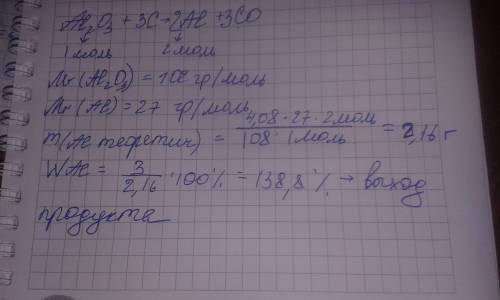 Al₂O₃ + 3C → 2Al + 3CO
1 моль 2 моль
Mr (Al₂O₃) = 108 гр/моль
Mr (Al) = 27 гр/моль
m(Al теоретич) = 4,08 · 27 · 2моль / 108 · 1 моль = 2,16 г
WAl = 3 / 2,16 · 100% = 138,8 % → выход
продукта